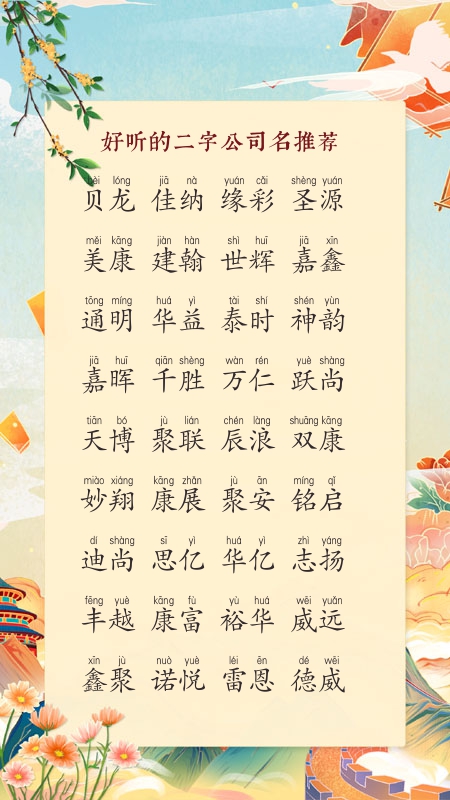 好听的二字公司名推荐
bèi lóng jiā nà yuán cǎi shèng yuán
贝龙 佳纳 缘彩 圣源
měi kāng jiàn hàn shì huī jiā xīn
美康 建翰 世辉 嘉鑫
tōng míng huá yì tài shí shén yùn
通明 华益 泰时 神韵
jiā huī qiān shèng wàn rén yuè shàng
嘉晖 千胜 万仁 跃尚
tiān bó jù lián chén làng shuāng kāng
天博 聚联 辰浪 双康
miào xiáng kāng zhǎn jù ān míng qǐ
妙翔 康展 聚安 铭启
dí shàng sī yì huá yì zhì yáng
迪尚 思亿 华亿 志扬
fēng yuè kāng fù yù huá wēi yuǎn
丰越 康富 裕华 威远
xīn jù nuò yuè léi ēn dé wēi
鑫聚 诺悦 雷恩 德威